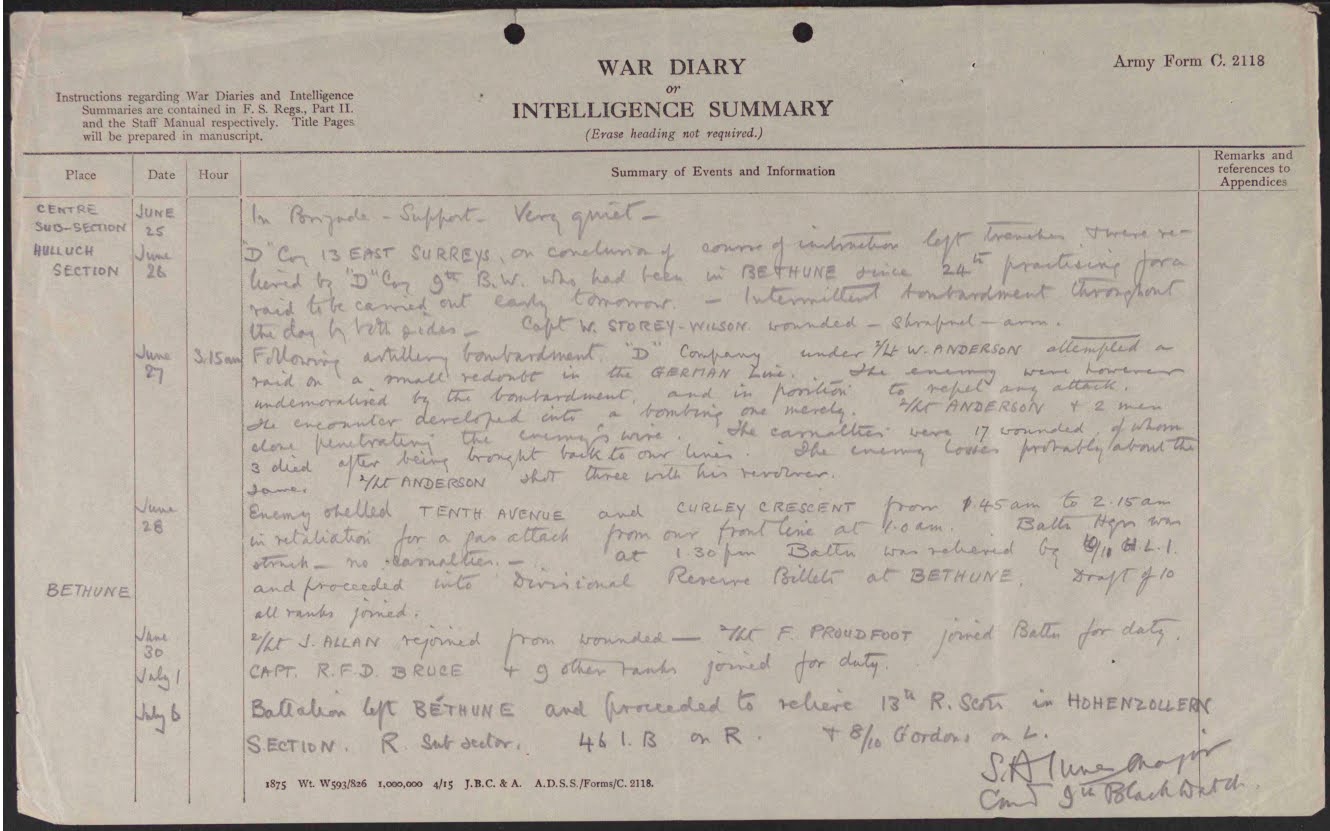 WAR DIARY
or
INTELLIGENCE SUMMARY
(Erase heading not required.)
Army Form C. 2118
Instructions regarding War Diaries and Intelligence
Summaries are contained in F. S. Regs., Part II.
and the Staff Manual respectively. Title Pages
will be prepared in manuscript.
Place Date Hour Summary of Events and Information Remarks and references to Appendices
CENTRE SUB-SECTION JUNE 25 In Brigade - Support - Very quiet -
HULLUCH SECTION June 26 "D" Coy 13 EAST SURREYS, on conclusion of course of instruction left trenches & were re-
lieved by "D" Coy 9th B.W. who had been in BETHUNE since 24th practising for a
raid to be carried out early tomorrow. - Intermittent bombardment throughout
the day by both sides - Capt W. STOREY-WILSON wounded - shrapnel - arm.
June 27 3.15am Following artillery bombardment "D" Company under 2/Lt W. ANDERSON attempted a
raid on a small redoubt in the GERMAN Line. The enemy were however
undemoralised by the bombardment, and in position to repel any attack.
The encounter developed into a bombing one merely. 2/Lt ANDERSON + 2 men
alone penetrating the enemy's wire. The casualties were 17 wounded, of whom
3 died after being brought back to our lines. The enemy losses probably about the
same. 2/Lt ANDERSON shot three with his revolver.
June 28 Enemy shelled TENTH AVENUE and CURLEY CRESCENT from 1.45am to 2.15am
in retaliation for a gas attack from our front line at 1.0am. Battn Hqrs was
struck - no casualties. - at 1.30pm Battn was relieved by 10/11 H.L.I.
BETHUNE and proceeded into Divisional Reserve Billets at BETHUNE. Draft of 10
all ranks joined.
June 30 2/Lt J. ALLAN rejoined from wounded - 2/Lt F. PROUDFOOT joined Battn for duty.
July 1 CAPT. R.F.D. BRUCE + 9 other ranks joined for duty.
July 6 Battalion left BÉTHUNE and proceeded to relieve 13th R. Scots in HOHENZOLLERN
SECTION. R. Sub sector. 46 I.B on R. + 8/10 Gordons on L.
S.A. Innes Major
Comd 9th Black Watch.
1875 Wt. W593/826 1,000,000 4/15 J.B.C. & A. A.D.S.S./Forms/C. 2118.